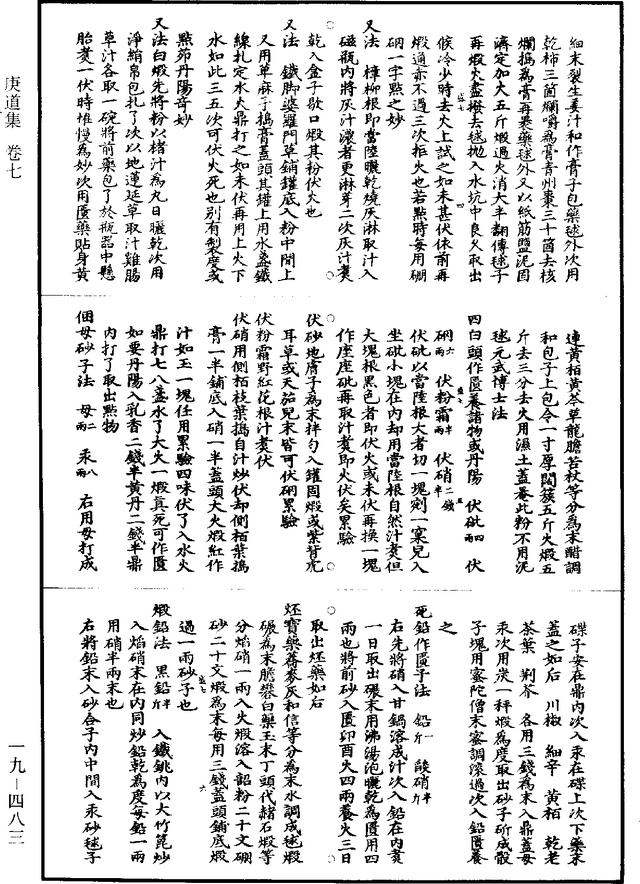 庚道集 卷七
一九-四八三
細末裂生姜汁和作膏子包藥毬外次用
乾柿三箇爛嚼為膏青州棗三十箇去核
爛搗為膏再裹藥毬外又以紙筋鹽泥固
濟定加大五斤煅過火消大半翻傳毬子
再煅火盡撥去毬拋入水坑中良久取出
候冷少時去火上試之如未甚伏依前再
煅通赤不過三次拒火也若點時每用硼
砂一字點之妙
又法 樟柳根即當陸曬乾燒灰淋取汁入
磁觀內將灰汁濃者更淋芽二次灰汁煑
乾入盒子歇口煅其粉伏火也
又法 鐵脚婆羅門草鋪罐底入粉中間上
又用萆麻子搗膏蓋頭其罐上用水盞鐵
線扎定水火鼎打之如未伏再用上火下
水如此三五次可伏火死也別有製度或
點茆丹陽奇妙
又法白煅先將粉以楮汁為丸日曬乾次用
淨絹帛包扎了次以地蓮延草取汁雞腸
草汁各取一碗將前藥包了於瓶器中懸
胎煑一伏時惟慢為妙次用匱藥貼身黃
連黃栢黃芩草龍膽苦杖等分為末醋調
和包子上包令一寸厚間簇五斤火煅五
斤去三分去火用濕土蓋罨此粉不用泥
毬元武博士法
四白頭作匱養諸物或丹陽 伏砒四兩 伏
硇六兩 伏粉霜半兩 伏硝二錢半
伏砒以當陸根大者切一塊剜一窠兒入
坐砒小塊在內却用當陸根自然汁煑但
大塊根黑色者即伏火或未伏再換一塊
作座座砒再取汁煑即火伏矣累驗
伏砂地膚子為末拌勻入罐固煅或紫背虎
耳草或天茄兒末皆可伏硇累驗
伏粉霜野紅花根汁煑伏
伏硝用側栢枝葉搗自汁炒伏却側栢葉搗
膏一半鋪底入硝一半蓋頭大火煅紅作
汁如玉一塊任用累驗四味伏了入水火
鼎打七八盞水了大火一煅真死可作匱
如要丹陽入乳香二錢半黃丹二錢半鼎
內打了取出點物
佃母砂子法 母二兩 汞八兩 右用母打成
碟子安在鼎內次入汞在碟上次下藥末
蓋之如后 川椒 細辛 黃栢 乾老
茶葉 荆芥 各用三錢為末入鼎蓋母
汞次用炭一秤煅為度取出砂子斫成骰
子塊用蜜陀僧末蜜調滾過次入鉛匱養
之
死鉛作匱子法 鉛一斤 酸硝半斤
右先將硝入甘鍋溶成汁次入鉛在內煑
一日取出碾末用沸湯泡曬乾為匱用四
兩也將前砂入匱卯酉火四兩養火三日
取出坯藥如后
坯寶藥蕎麥灰和信等分為末水調成毬煅
碾為末膽礬白藥玉末丁頭代赭石煅等
分焰硝一兩入火煅溶入韶粉二十文硼
砂二十文煅為末每用三錢蓋頭鋪底煅
過一兩砂子也
煅鉛法 黑鉛半斤 入鐵銚內以大竹箆炒
入焰硝末在內同炒鉛乾為度每鉛一兩
用硝半兩末也
右將鉛末入砂合子內中間入汞砂毬子